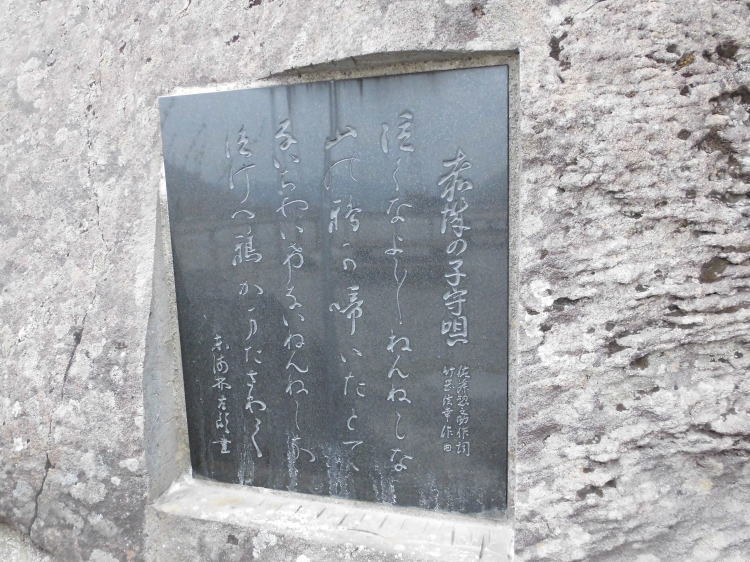 赤城の子守唄
佐藤惣之助作詞
竹岡信幸作曲
泣くなよし〳〵ねんねしな
山の鴉が啼いたとて
ないちやいけないねんねしな
泣けば鴉がまたさわぐ
東海林太郎書